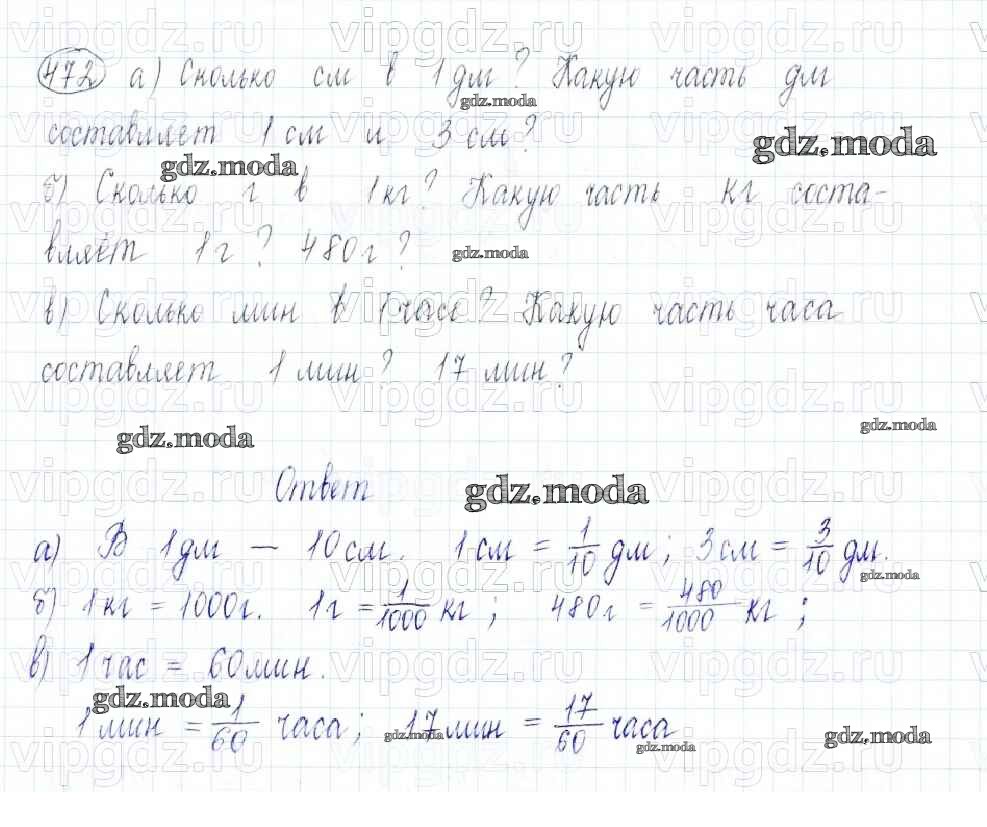 472 а) Сколько см в 1 дм? Какую часть дм
составляет 1 см и 3 см?
б) Сколько г в 1 кг? Какую часть кг соста-
вляет 1 г? 480 г?
в) Сколько мин в 1 часе? Какую часть часа
составляет 1 мин? 17 мин?
Ответ
а) В 1 дм — 10 см. 1 см = 1/10 дм; 3 см = 3/10 дм.
б) 1 кг = 1000 г. 1 г = 1/1000 кг; 480 г = 480/1000 кг;
в) 1 час = 60 мин.
1 мин = 1/60 часа; 17 мин = 17/60 часа
gdz.moda
vipgdz.ru